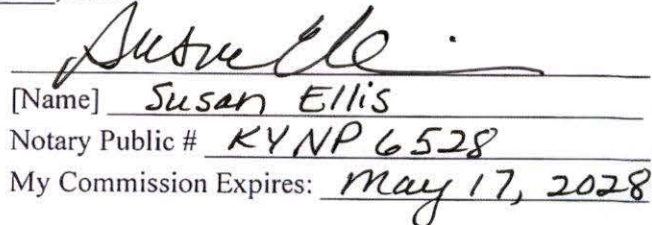 Susan Ellis
[Name] Susan Ellis
Notary Public # KYNP 6528
My Commission Expires: May 17, 2028